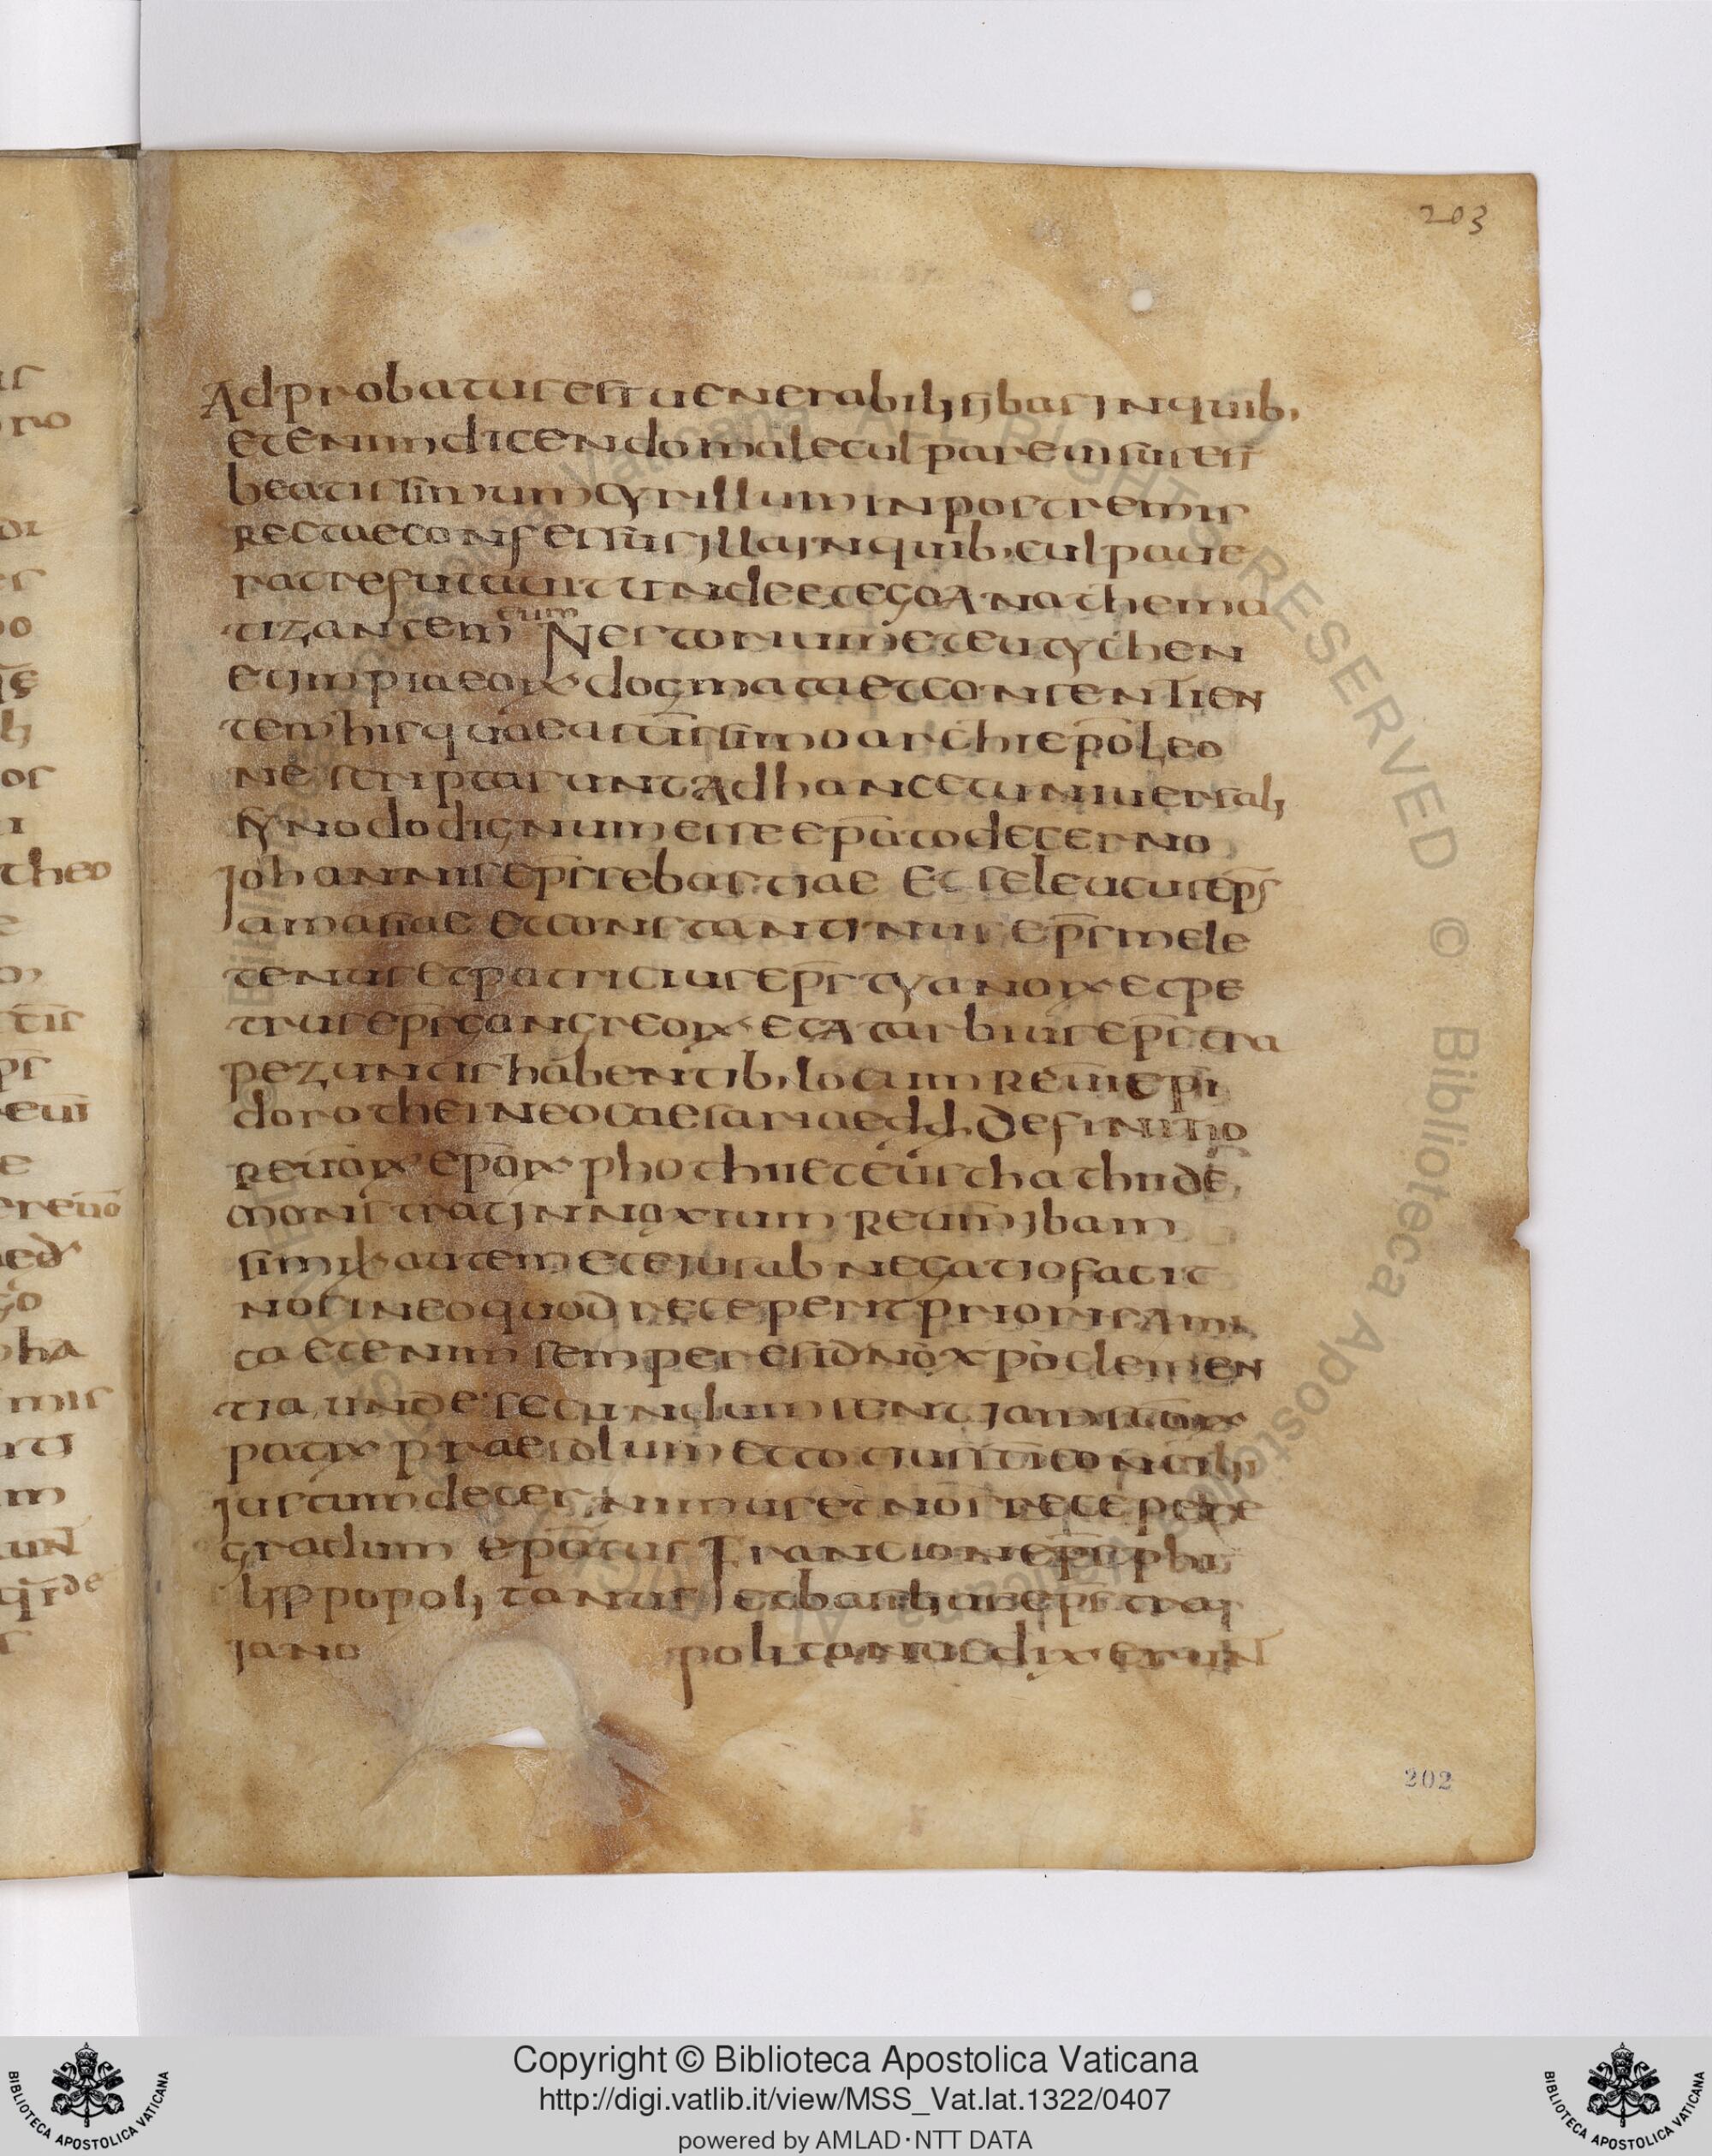 203
Adprobatus est uenerabilis ibas in quib,
etenim dicendo male culpare uisus est
beatissimum cyrillum in postremis
rectae confessus illa in quib, culpaue
rat refutauit unde et ego anathema
tizantem eum Nestorium et eutychen
et impia eoꝝ dogmata et consentien
tem his quae a sc̄issimo archiep̄o Leo
ne scripta sunt Ad hanc et uniuersali
synodo dignum esse ep̄ato decerno
Johannis ep̄s sebastiae Et seleucus ep̄s
amasiae et constantinus ep̄s mele
tenus et patricius ep̄s tyanoꝝ et pe
trus ep̄s gangreoꝝ et Atarbius ep̄s tra
pezuntis habentib, locum reum̄i ep̄i
dorothei neocaesariae dd, Definitio
reuōꝝ ep̄ōꝝ phothii et eustathii de
monstrat innoxium reum̄ ibam
simil autem et eius abnegatio facit
nos in eo quod receperit prioris Ami
ca etenim semper est dn̄o xp̄o clemen
tia, unde secundum sententiam sc̄ōꝝ
patꝝ praesolum et totius sc̄i concilii
justum decernimus et nos recepere
gradum ep̄atus Francion ep̄s phi
lippopolitanus et basilius ep̄s trai
iano politanus dixerun̄
202
Copyright © Biblioteca Apostolica Vaticana
http://digi.vatlib.it/view/MSS_Vat.lat.1322/0407
powered by AMLAD·NTT DATA
BIBLIOTECA APOSTOLICA VATICANA
BIBLIOTECA APOSTOLICA VATICANA